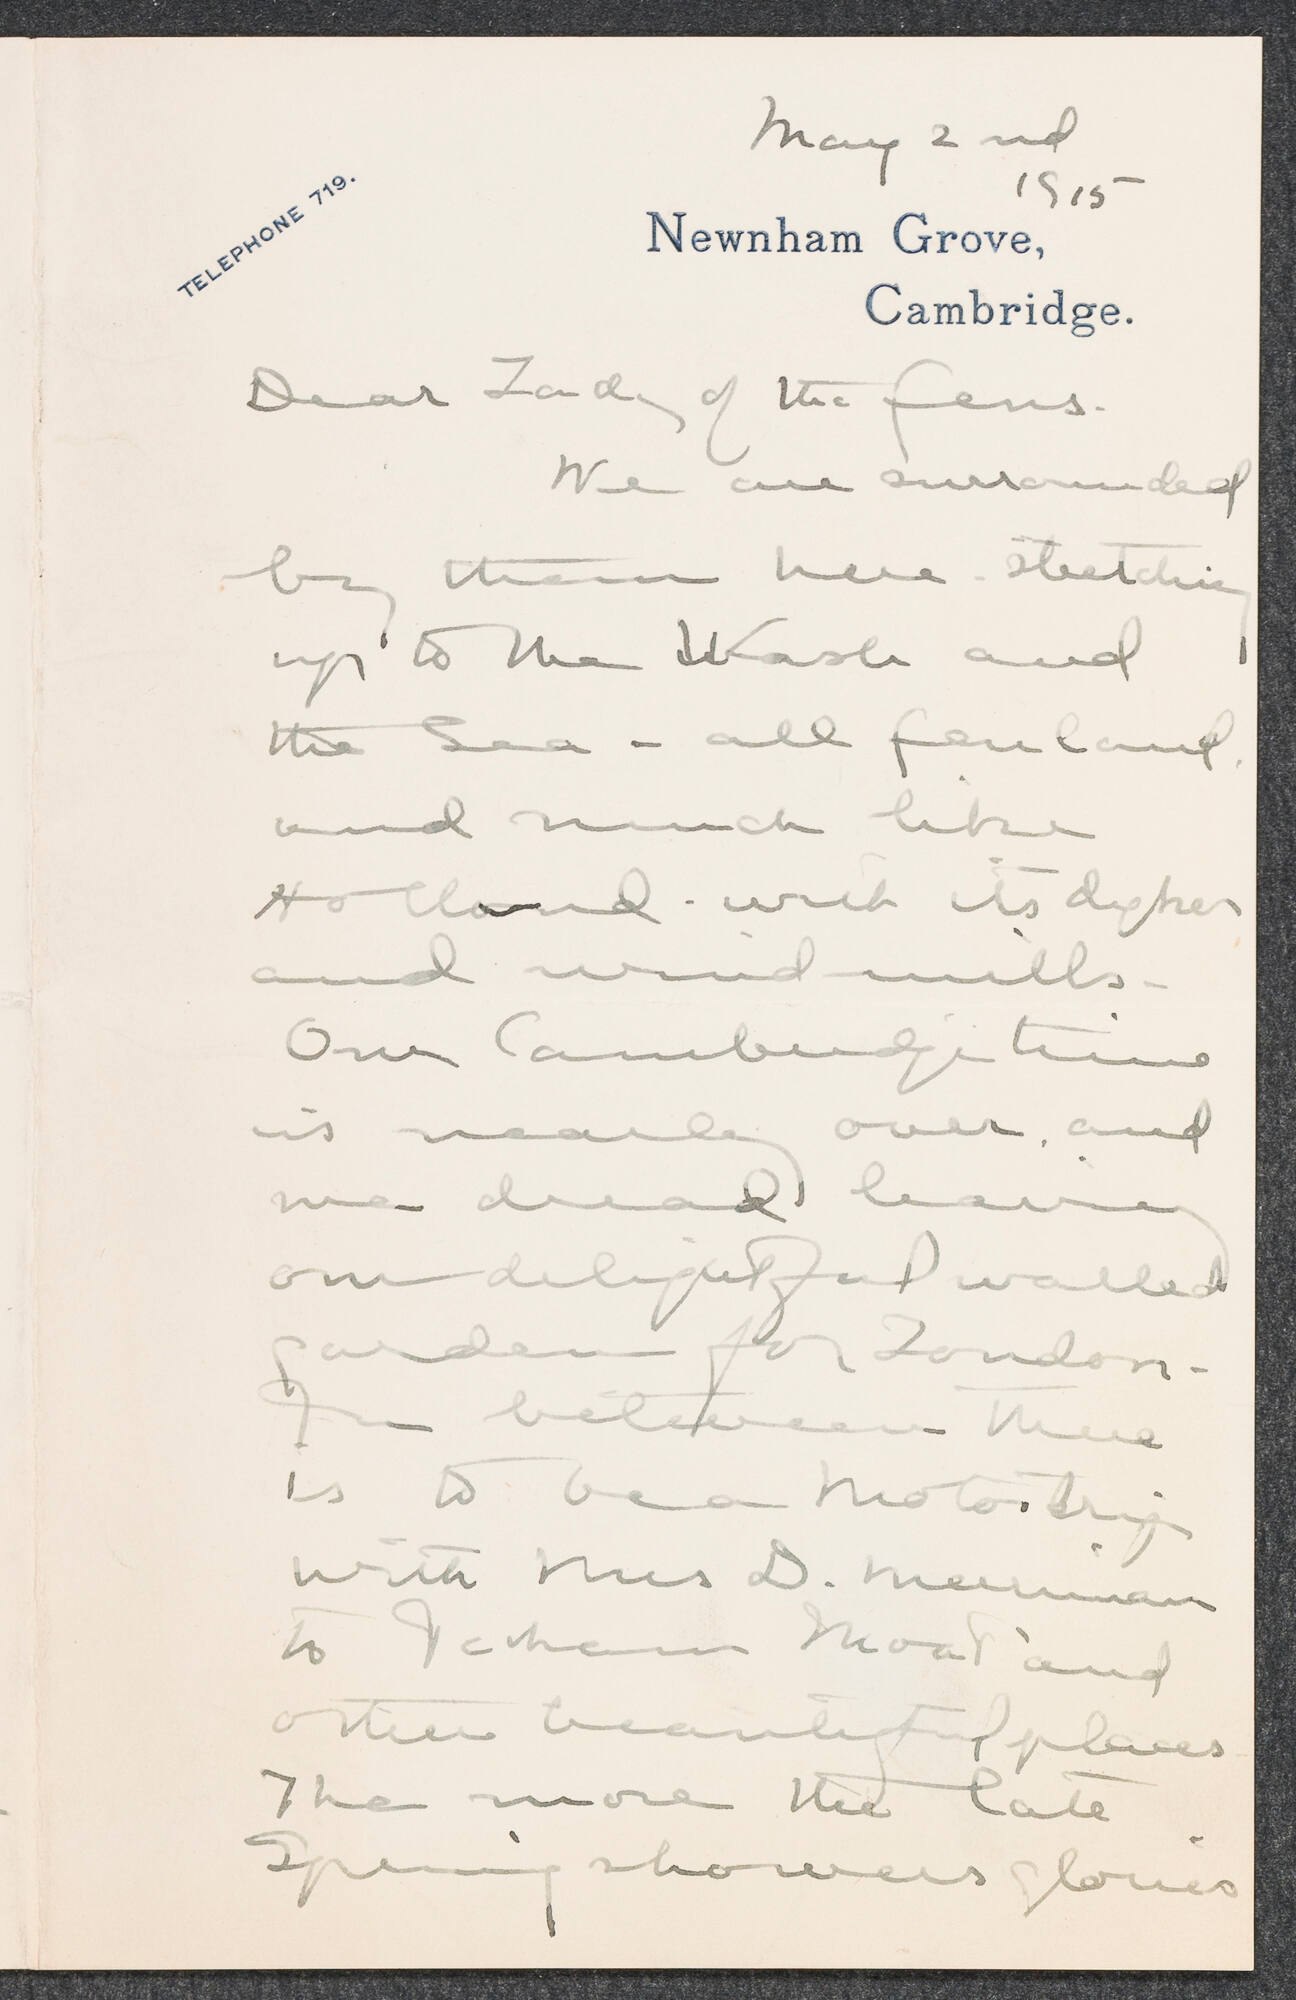 May 2nd
1915
TELEPHONE 719.
Newnham Grove,
Cambridge.
Dear Lady of the Fens.
We are surrounded
by them here - stretching
up to the Wash and
the Sea - all fenland,
and much like
Holland - with its dykes
and wind-mills -
Our Cambridge time
is nearly over, and
we dread leaving
our delightful walled
garden for London -
In between there
is to be a Motor trip
with Mrs D. Merriman
to Ightham Moat and
other beautiful places
The more the late
Spring showers glories